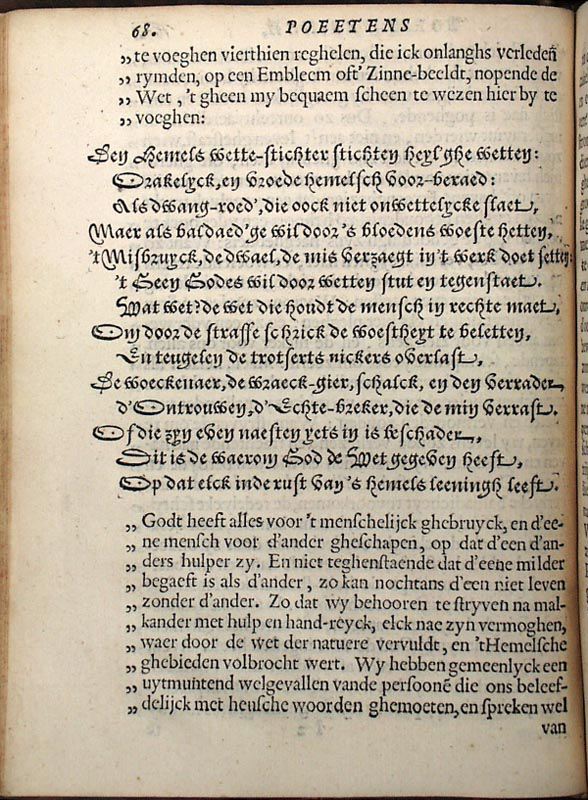 68. POEETENS
„te voeghen vierthien reghelen, die ick onlanghs verledeñ
„rymden, op een Embleem oft' Zinne-beeldt, nopende de
„Wet, 't gheen my bequaem scheen te wezen hier by te
„voeghen:
Den Hemels wette-stichter stichten heyl'ghe wetten:
Orakelyck, en vroede hemelsch voor-beraed:
Als dwang-roed', die oock niet onwettelycke slaet,
Maer als baldaed'ge wil door 's bloedens woeste hetten,
't Misbruyck, de dwael, de mis verzaegt in't werk doet setten;
't Geen Godes wil door wetten stut en tegenstaet.
Wat wet? de wet die houdt de mensch in rechte maet,
Om door de straffe schrick de woestheyt te beletten,
En teugelen de trotserts nickers overlast,
De woeckenaer, de wraeck-gier, schalck, en den verrader,
d'Ontrouwen, d'Echte-breker, die de min verrast.
Of die zyn even naesten yets in is beschader,
Dit is de waerom God de Wet gegeven heeft,
Op dat elck in de rust van 's hemels leeningh leeft.
„Godt heeft alles voor 't menschelijck ghebruyck, en d'ee-
„ne mensch voor d'ander gheschapen, op dat d'een d'an-
„ders hulper zy. En niet teghenstaende dat d'eene milder
„begaeft is als d'ander, zo kan nochtans d'een niet leven
„zonder d'ander. Zo dat wy behooren te stryven na mal-
„kander met hulp en hand-reyck, elck nae zyn vermoghen,
„waer door de wet der natuere vervuldt, en 't Hemelsche
„ghebieden volbrocht wert. Wy hebben gemeenlyck een
„uytmuntend welgevallen vande persoonē die ons beleef-
„delijck met heusche woorden ghemoeten, en spreken wel
van